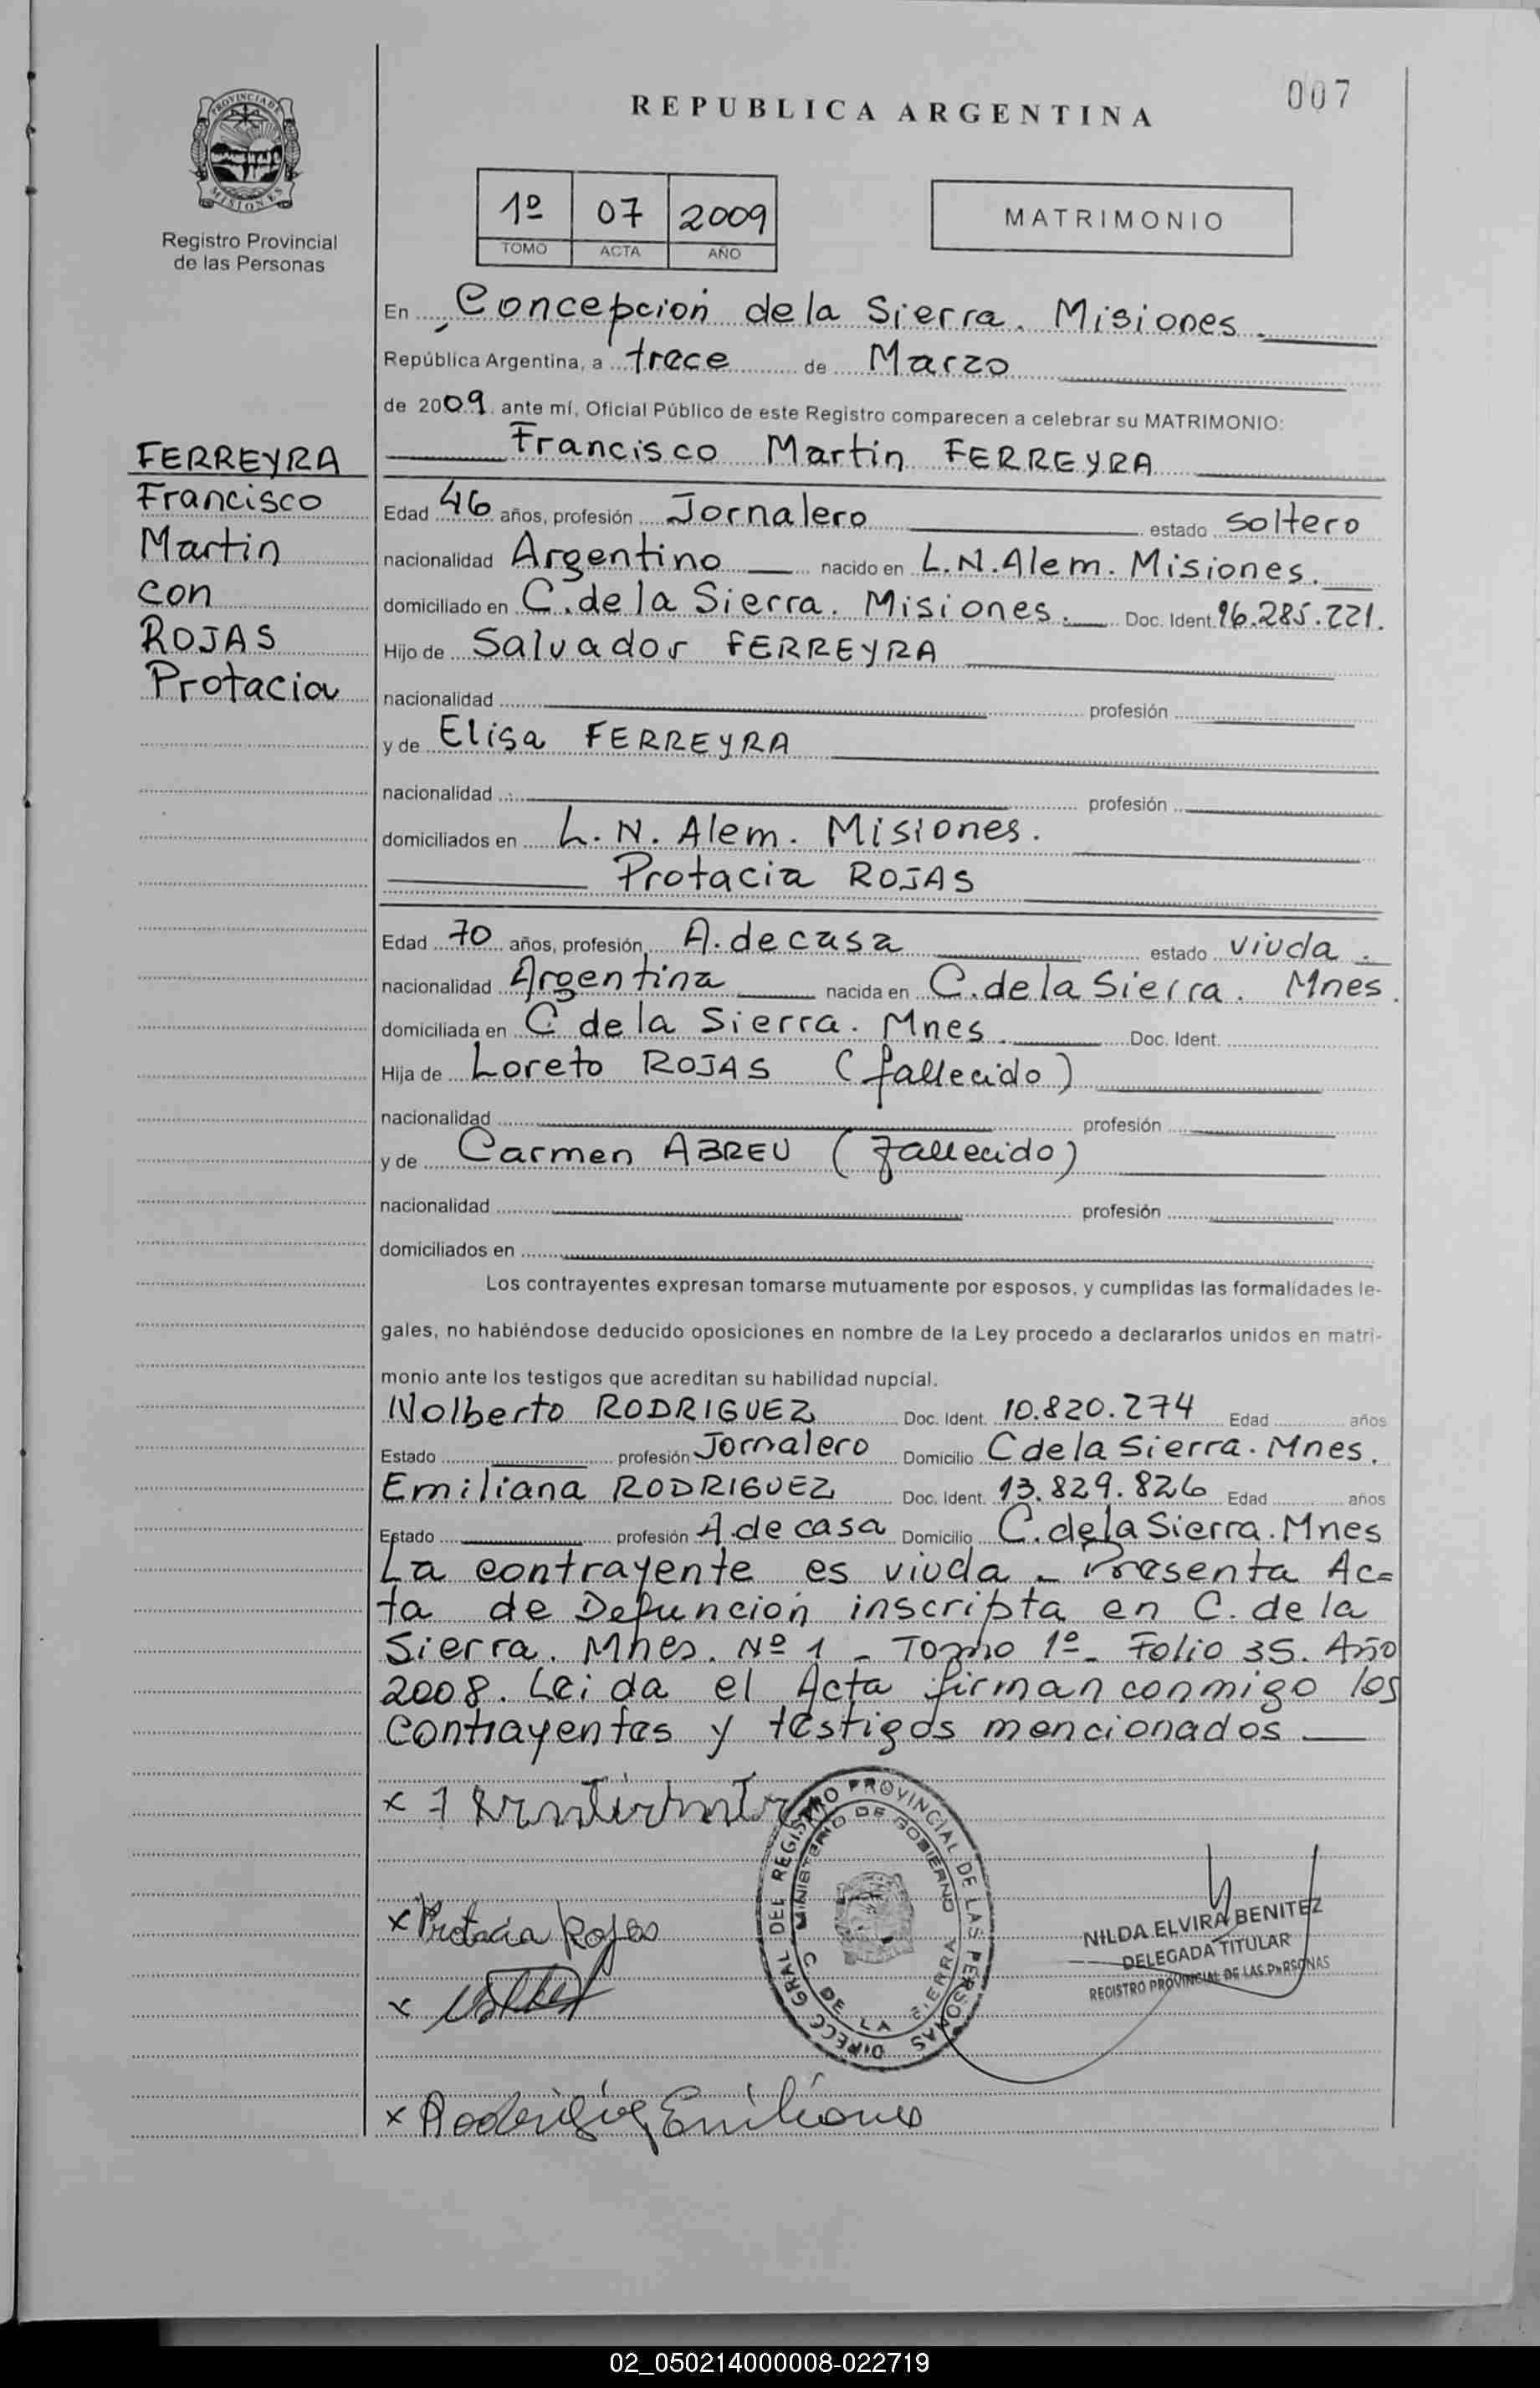 007
REPUBLICA ARGENTINA
PROVINCIA DE MISIONES
Registro Provincial
de las Personas
1º 07 2009
TOMO ACTA AÑO
MATRIMONIO
En Concepción de la Sierra. Misiones.
República Argentina, a trece de Marzo
de 2009 ante mí, Oficial Público de este Registro comparecen a celebrar su MATRIMONIO:
Francisco Martin FERREYRA
FERREYRA
Francisco
Martin
con
ROJAS
Protacia
Edad 46 años, profesión Jornalero estado soltero
nacionalidad Argentino nacido en L.N. Alem. Misiones.
domiciliado en C. de la Sierra. Misiones. Doc. Ident. 16.285.221.
Hijo de Salvador FERREYRA
nacionalidad profesión
y de Elisa FERREYRA
nacionalidad profesión
domiciliados en L. N. Alem. Misiones.
Protacia ROJAS
Edad 70 años, profesión A. de casa estado viuda.
nacionalidad Argentina nacida en C. de la Sierra. Mnes.
domiciliada en C de la Sierra. Mnes. Doc. Ident.
Hija de Loreto ROJAS (fallecido)
nacionalidad profesión
y de Carmen ABREU (fallecido)
nacionalidad profesión
domiciliados en
Los contrayentes expresan tomarse mutuamente por esposos, y cumplidas las formalidades le-
gales, no habiéndose deducido oposiciones en nombre de la Ley procedo a declararlos unidos en matri-
monio ante los testigos que acreditan su habilidad nupcial.
Nolberto RODRIGUEZ Doc. Ident. 10.820.274 Edad años
Estado profesión Jornalero Domicilio C de la Sierra. Mnes.
Emiliana RODRIGUEZ Doc. Ident. 13.829.826 Edad años
Estado profesión A. de casa Domicilio C. de la Sierra. Mnes
La contrayente es viuda - Presenta Ac=
ta de Defunción inscripta en C. de la
Sierra. Mnes. Nº 1 - Tomo 1º - Folio 35. Año
2008. Leida el Acta firman conmigo los
contrayentes y testigos mencionados
x
x Protacia Rojas
x
x Rodrigues Emiliana
DIRECC GRAL DEL REGISTRO PROVINCIAL DE LAS PERSONAS
MINISTERIO DE GOBIERNO
C DE LA SIERRA
NILDA ELVIRA BENITEZ
DELEGADA TITULAR
REGISTRO PROVINCIAL DE LAS PERSONAS
02_050214000008-022719